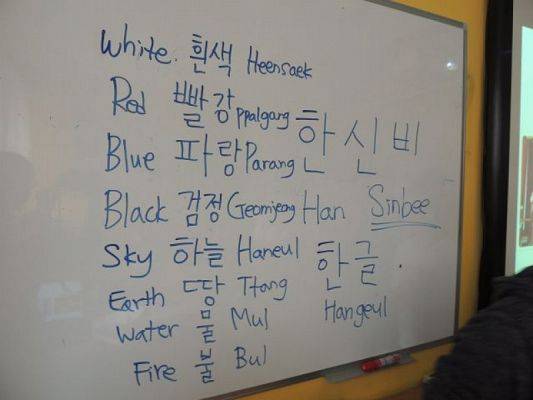 White. 흰색 Heensaek
Red 빨강 Ppalgang
Blue 파랑 Parang
Black 검정 Geomjeong
Sky 하늘 Haneul
Earth 땅 Ttang
Water 물 Mul
Fire 불 Bul
한신비
Han Sinbee
한글.
Hangeul